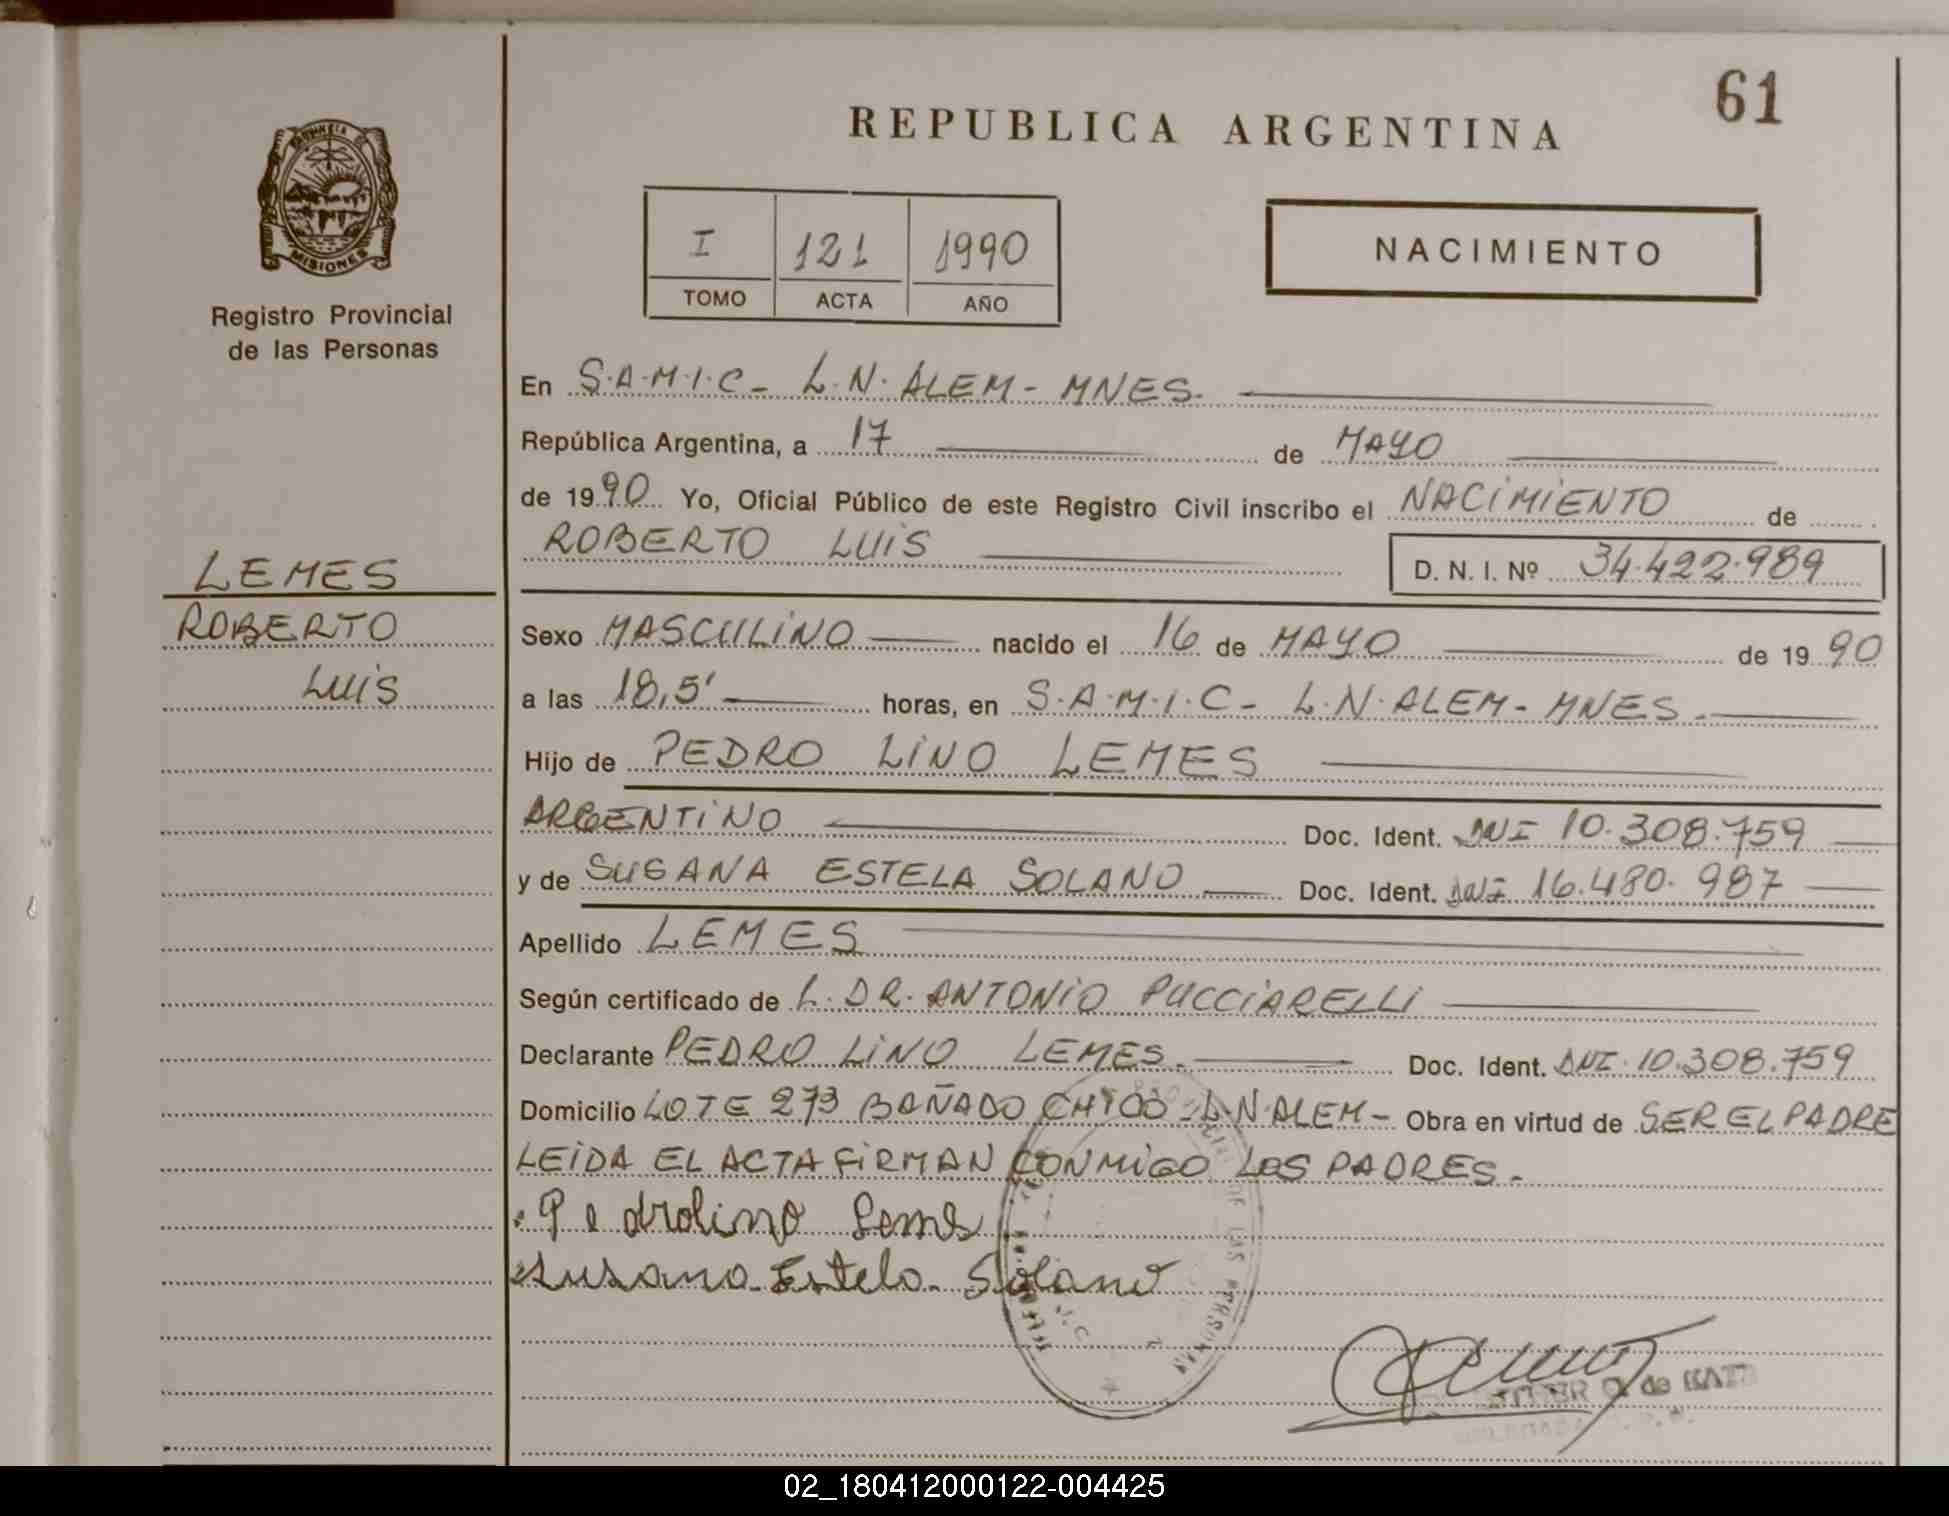 61
REPUBLICA ARGENTINA
PROVINCIA DE
MISIONES
Registro Provincial
de las Personas
I 121 1990
TOMO ACTA AÑO
NACIMIENTO
En S.A.M.I.C - L.N. ALEM - MNES.
República Argentina, a 17 de MAYO
de 1990 Yo, Oficial Público de este Registro Civil inscribo el NACIMIENTO de
ROBERTO LUIS D. N. I. Nº 34.422.989
LEMES
ROBERTO
LUIS
Sexo MASCULINO nacido el 16 de MAYO de 1990
a las 18,5' horas, en S.A.M.I.C - L.N. ALEM - MNES.
Hijo de PEDRO LINO LEMES
ARGENTINO Doc. Ident. DNI 10.308.759
y de SUSANA ESTELA SOLANO Doc. Ident. DNI 16.480.987
Apellido LEMES
Según certificado de L. DR. ANTONIO PUCCIARELLI
Declarante PEDRO LINO LEMES. Doc. Ident. DNI. 10.308.759
Domicilio LOTE 273 BAÑADO CHICO - L.N. ALEM - Obra en virtud de SER EL PADRE
LEIDA EL ACTA FIRMAN CONMIGO LOS PADRES.
Pedrolino Lemes
Susana Estela Solano
DE LAS PERSONAS
de KATZ
02_180412000122-004425